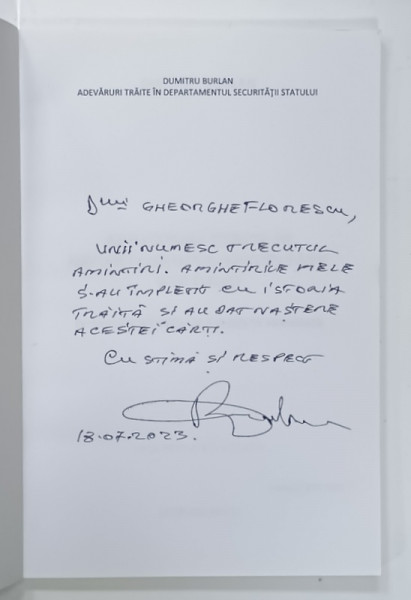 DUMITRU BURLAN
ADEVĂRURI TRĂITE ÎN DEPARTAMENTUL SECURITĂȚII STATULUI
Dlui GHEORGHE FLORESCU,
UNII NUMESC TRECUTUL
AMINTIRI. AMINTIRILE MELE
S-AU ÎMPLETIT CU ISTORIA
TRĂITĂ SI AU DAT NAȘTERE
ACESTEI CĂRȚI.
CU STIMĂ ȘI RESPECT
Burlan
18.07.2023.